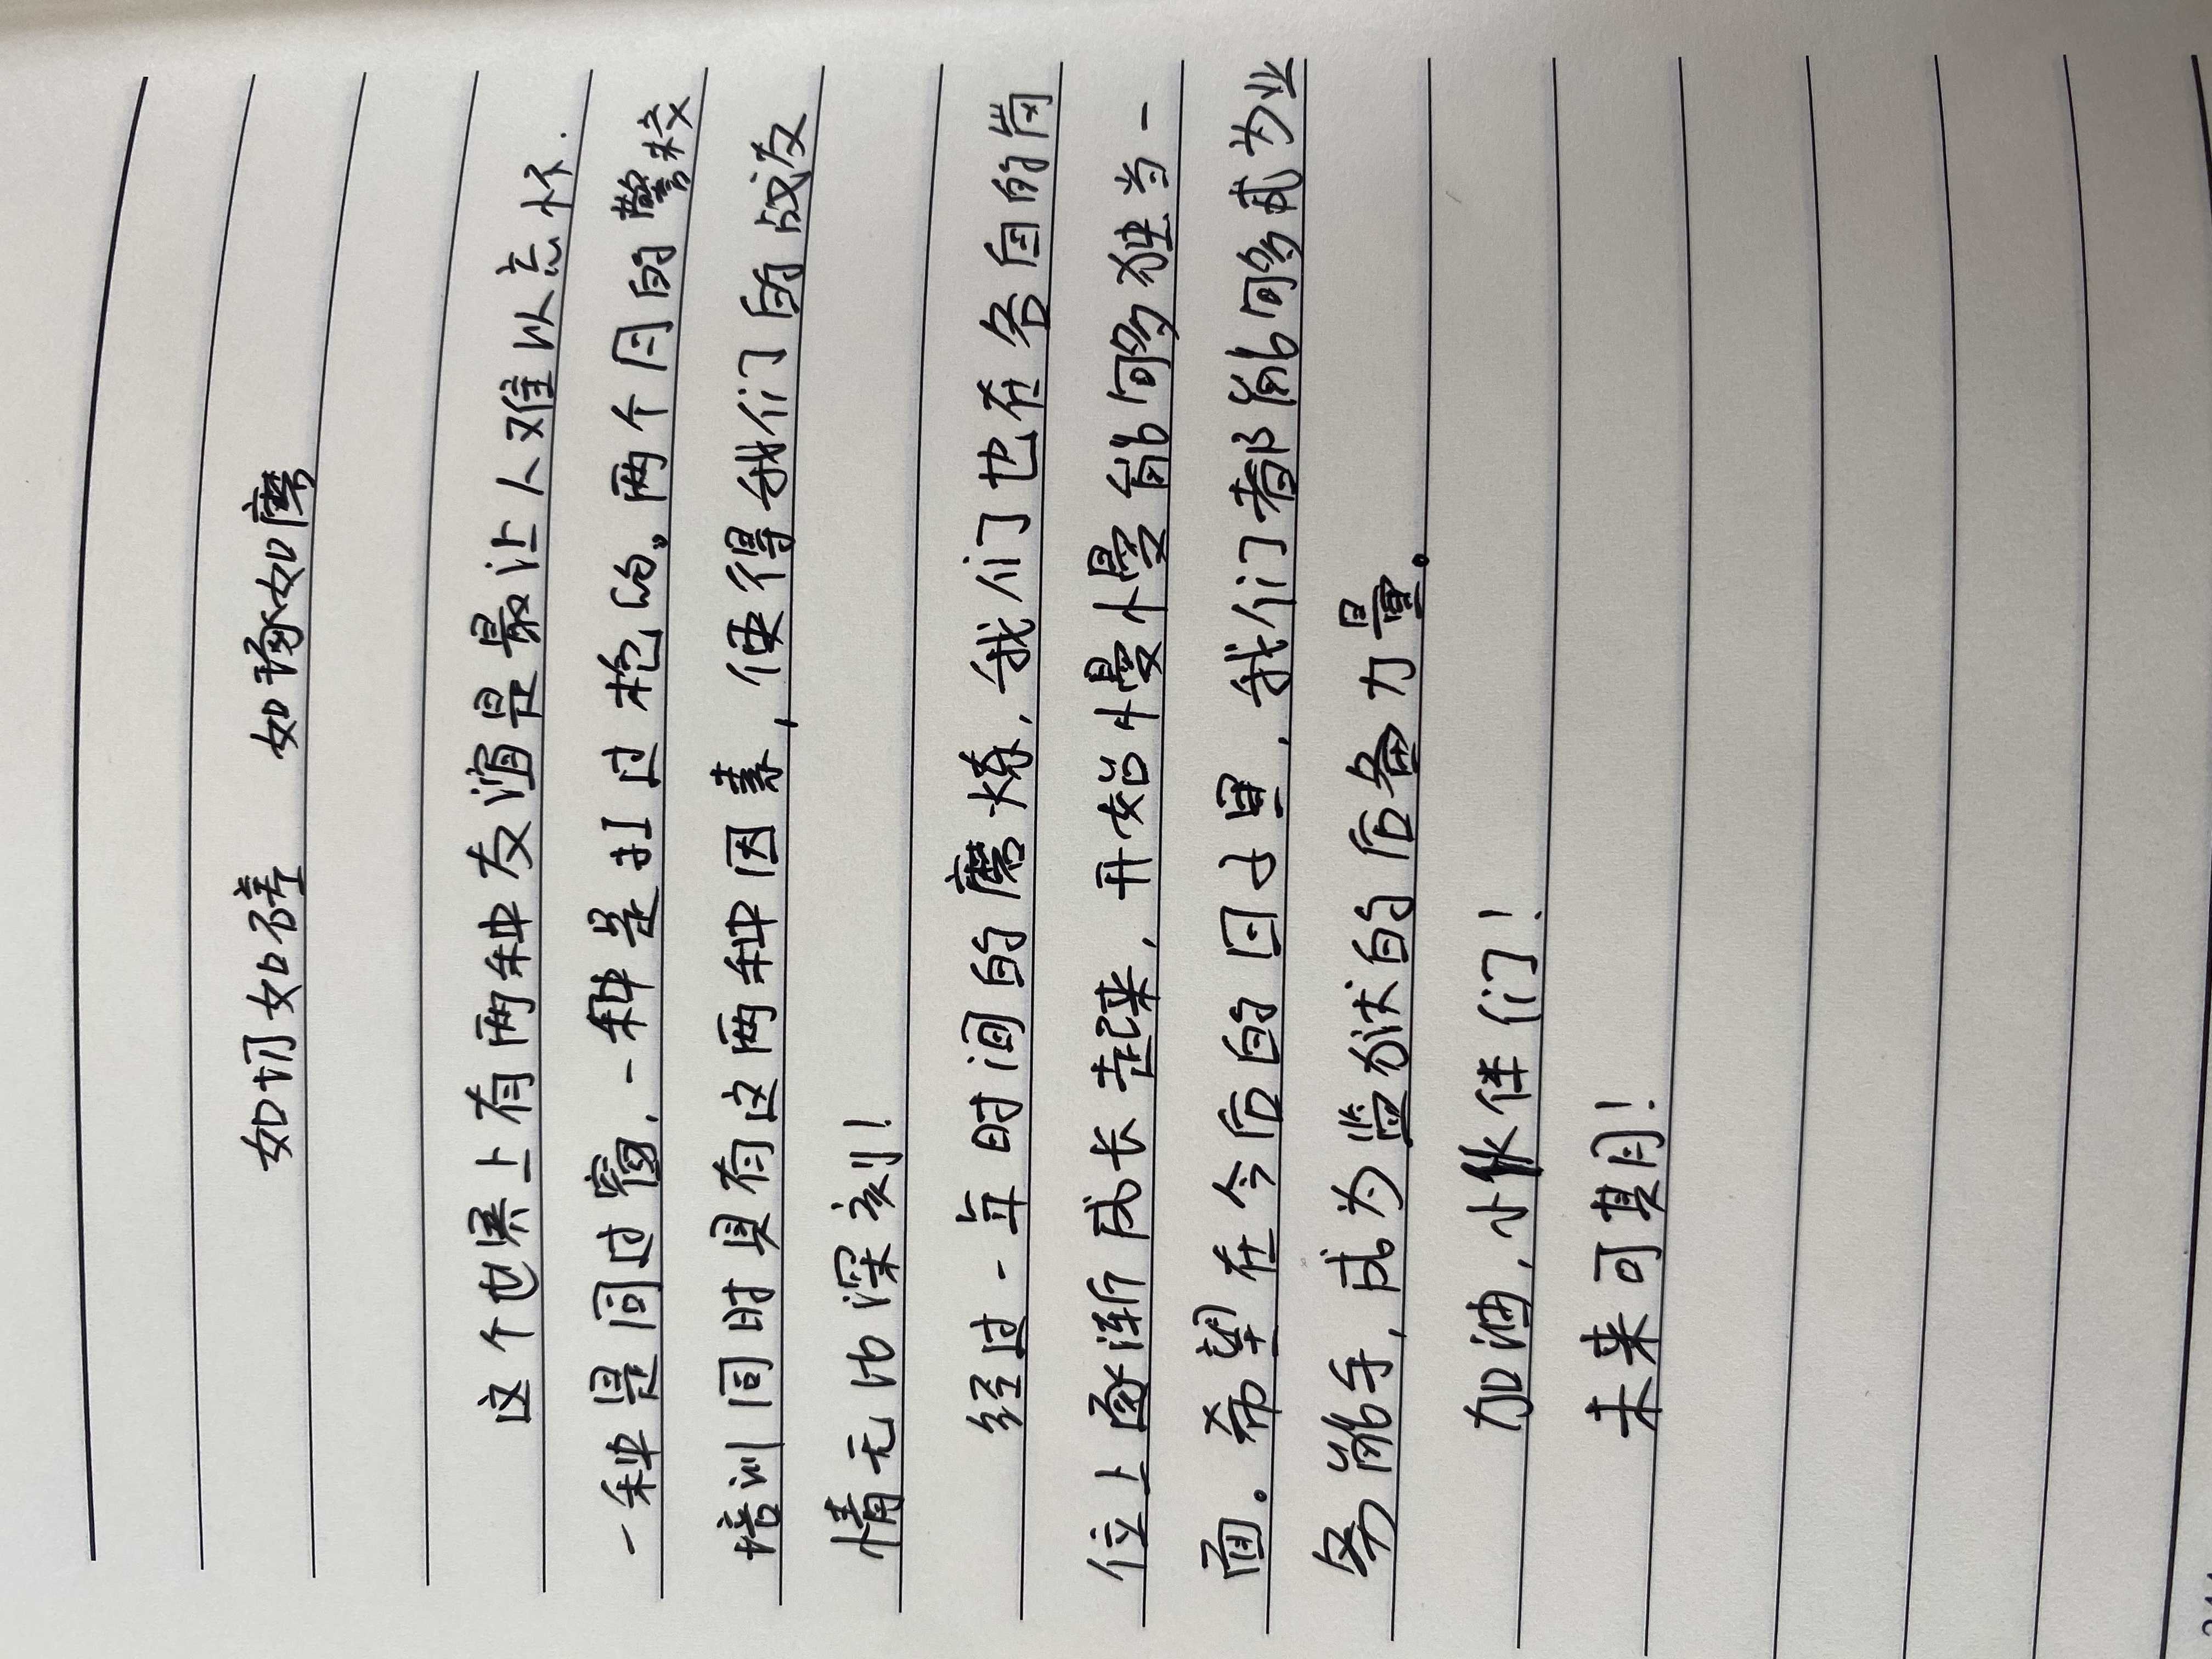 如切如磋 如琢如磨
这个世界上有两种友谊是最让人难以忘怀.
一种是同过窗,一种是扛过枪的。两个月的警校
培训同时具有这两种因素,使得我们的战友
情无比深刻!
经过一年时间的磨炼,我们也在各自的岗
位上逐渐成长起来,开始慢慢能够独当一
面。希望在今后的日子里,我们都能够成为业
务能手,成为监狱的后备力量。
加油,小伙伴们!
未来可期!